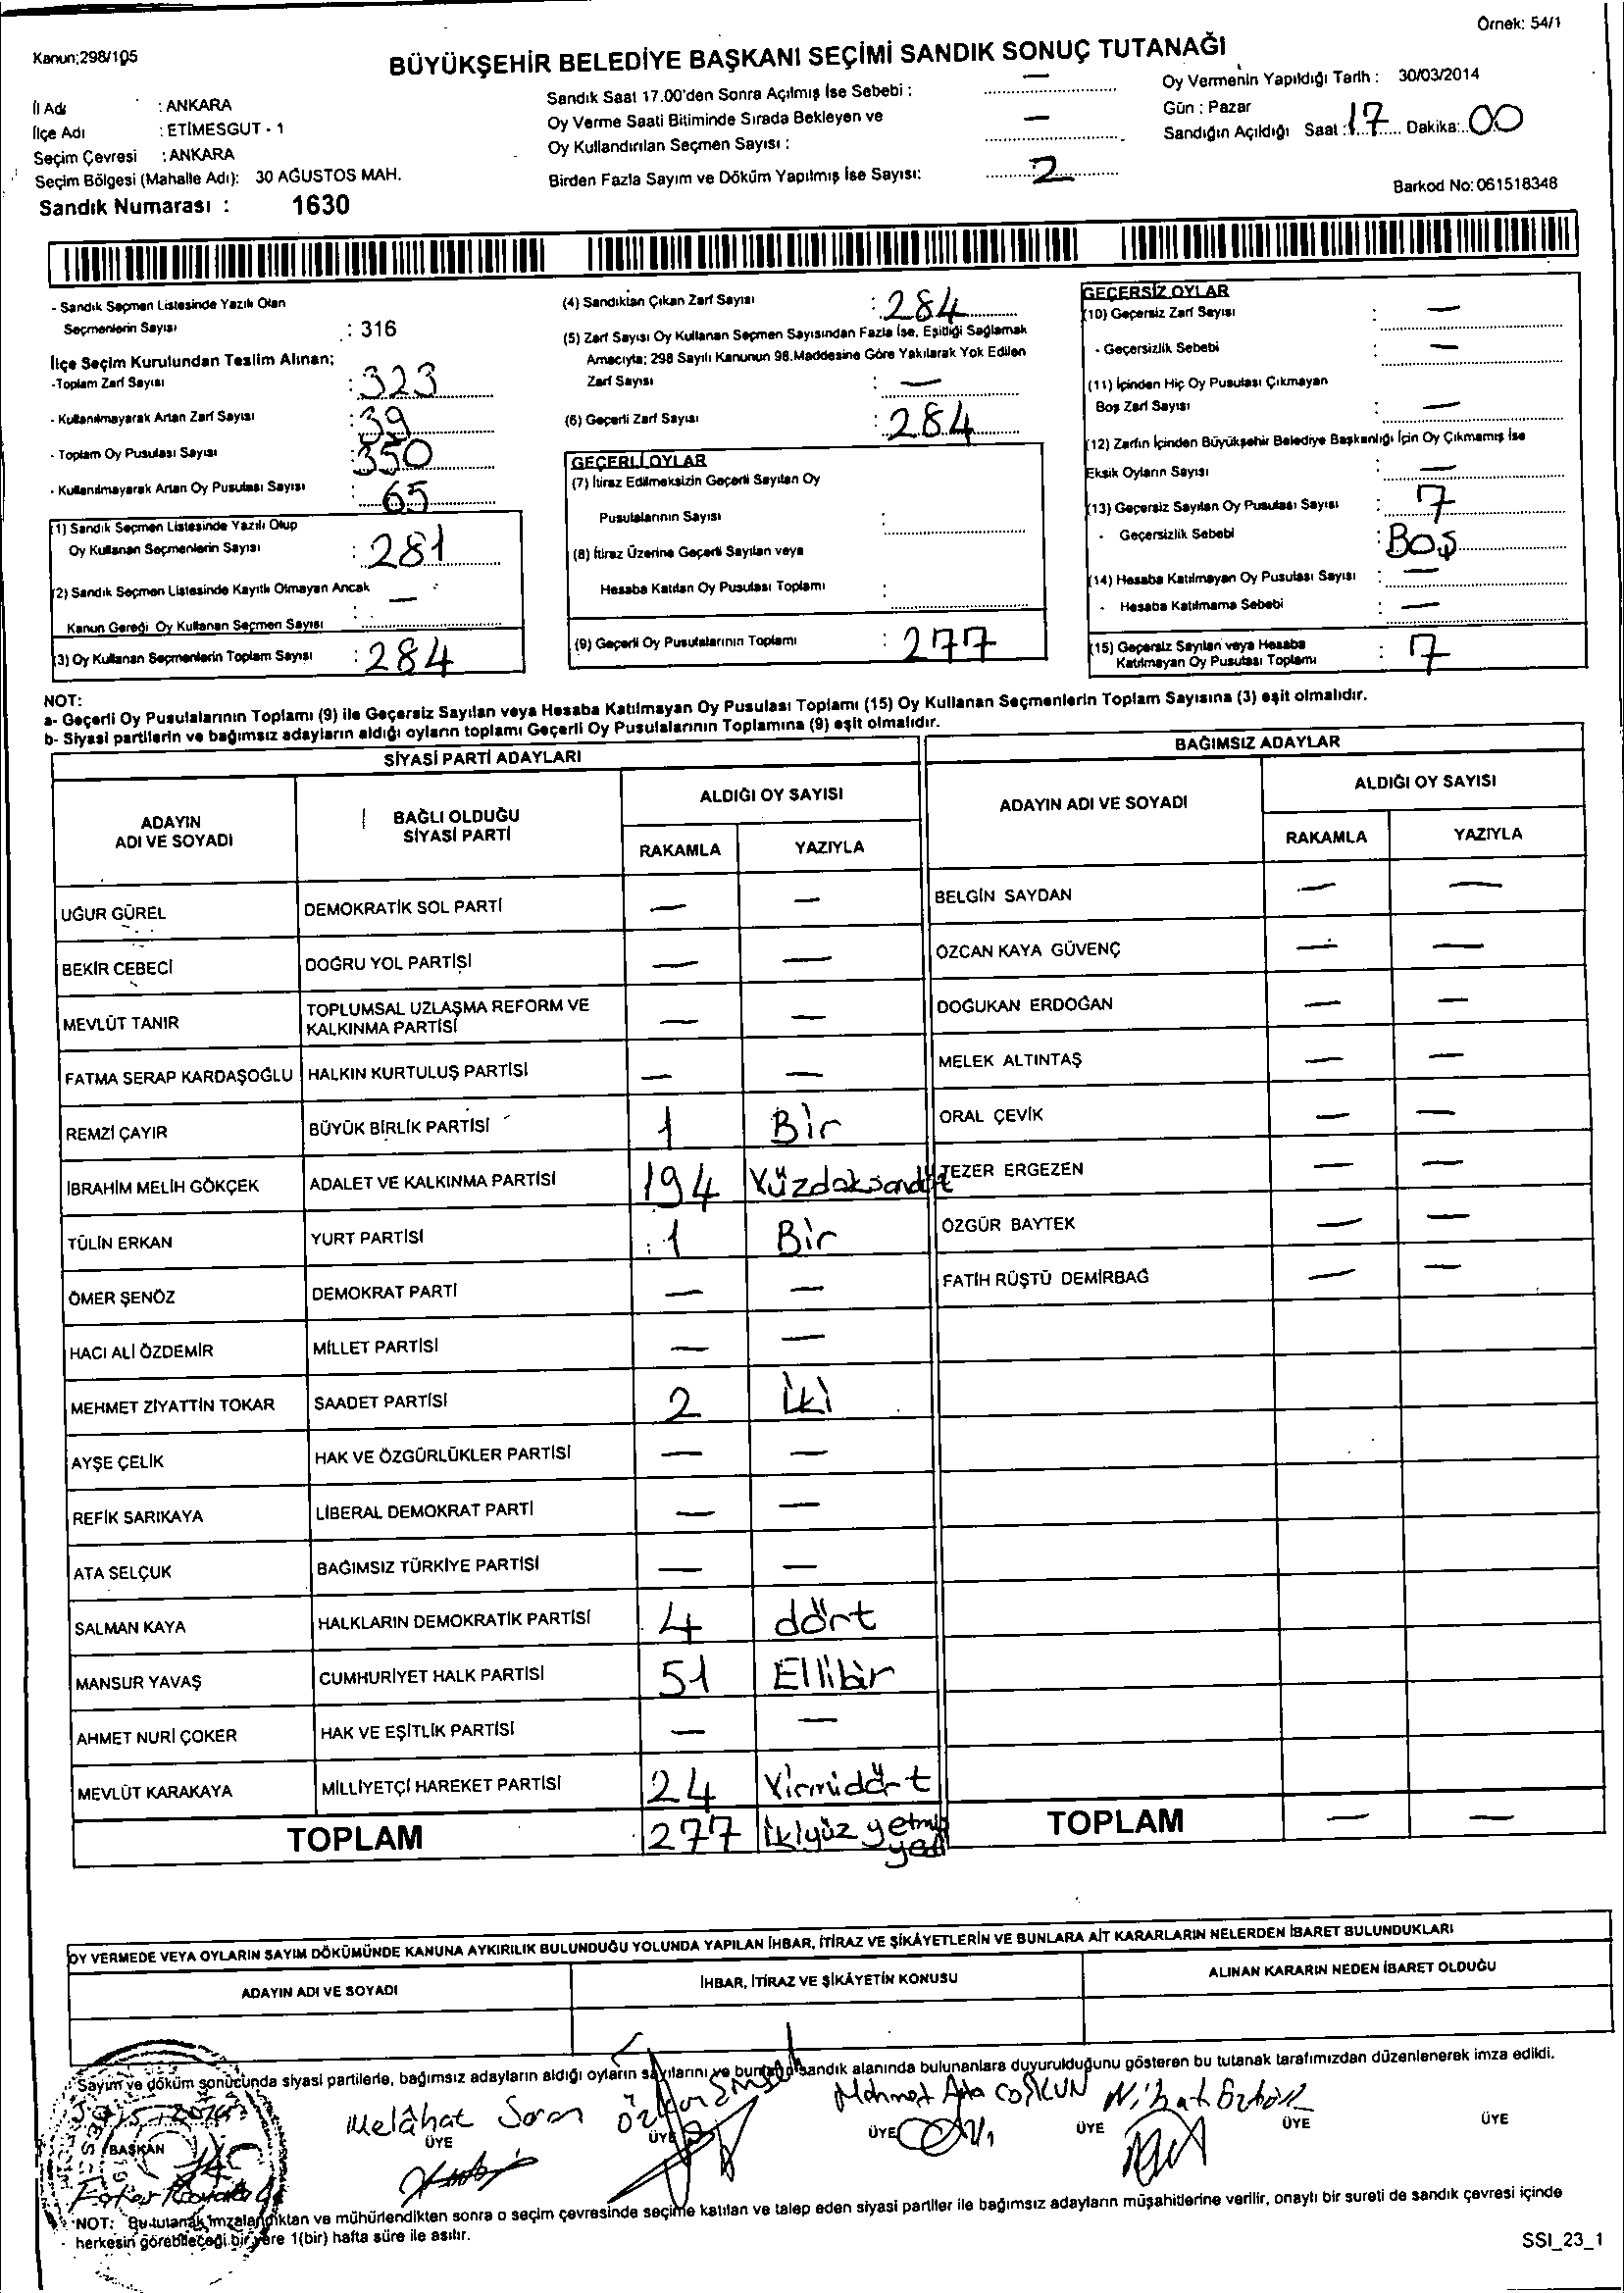 Örnek: 54/1
Kanun;298/105
BÜYÜKŞEHİR BELEDİYE BAŞKANI SEÇİMİ SANDIK SONUÇ TUTANAĞI
İl Adı : ANKARA
İlçe Adı : ETİMESGUT - 1
Seçim Çevresi : ANKARA
Seçim Bölgesi (Mahalle Adı): 30 AĞUSTOS MAH.
Sandık Numarası : 1630
Sandık Saat 17.00'den Sonra Açılmış İse Sebebi : —
Oy Verme Saati Bitiminde Sırada Bekleyen ve
Oy Kullandırılan Seçmen Sayısı : —
Birden Fazla Sayım ve Döküm Yapılmış İse Sayısı: 2
Oy Vermenin Yapıldığı Tarih : 30/03/2014
Gün : Pazar
Sandığın Açıldığı Saat : 17 Dakika: 00
Barkod No: 061518348
- Sandık Seçmen Listesinde Yazılı Olan
Seçmenlerin Sayısı : 316
İlçe Seçim Kurulundan Teslim Alınan;
-Toplam Zarf Sayısı : 323
- Kullanılmayarak Artan Zarf Sayısı : 39
- Toplam Oy Pusulası Sayısı : 350
- Kullanılmayarak Artan Oy Pusulası Sayısı : 65
(1) Sandık Seçmen Listesinde Yazılı Olup
Oy Kullanan Seçmenlerin Sayısı : 281
(2) Sandık Seçmen Listesinde Kayıtlı Olmayan Ancak
Kanun Gereği Oy Kullanan Seçmen Sayısı : —
(3) Oy Kullanan Seçmenlerin Toplam Sayısı : 284
(4) Sandıktan Çıkan Zarf Sayısı : 284
(5) Zarf Sayısı Oy Kullanan Seçmen Sayısından Fazla İse, Eşitliği Sağlamak
Amacıyla; 298 Sayılı Kanunun 98.Maddesine Göre Yakılarak Yok Edilen
Zarf Sayısı : —
(6) Geçerli Zarf Sayısı : 284
GEÇERLİ OYLAR
(7) İtiraz Edilmeksizin Geçerli Sayılan Oy
Pusulalarının Sayısı :
(8) İtiraz Üzerine Geçerli Sayılan veya
Hesaba Katılan Oy Pusulası Toplamı :
(9) Geçerli Oy Pusulalarının Toplamı : 277
GEÇERSİZ OYLAR
(10) Geçersiz Zarf Sayısı : —
- Geçersizlik Sebebi : —
(11) İçinden Hiç Oy Pusulası Çıkmayan
Boş Zarf Sayısı : —
(12) Zarfın İçinden Büyükşehir Belediye Başkanlığı İçin Oy Çıkmamış İse
Eksik Oyların Sayısı : —
(13) Geçersiz Sayılan Oy Pusulası Sayısı : 7
- Geçersizlik Sebebi : BOŞ
(14) Hesaba Katılmayan Oy Pusulası Sayısı : —
- Hesaba Katılmama Sebebi : —
(15) Geçersiz Sayılan veya Hesaba
Katılmayan Oy Pusulası Toplamı : 7
NOT:
a- Geçerli Oy Pusulalarının Toplamı (9) ile Geçersiz Sayılan veya Hesaba Katılmayan Oy Pusulası Toplamı (15) Oy Kullanan Seçmenlerin Toplam Sayısına (3) eşit olmalıdır.
b- Siyasi partilerin ve bağımsız adayların aldığı oyların toplamı Geçerli Oy Pusulalarının Toplamına (9) eşit olmalıdır.
SİYASİ PARTİ ADAYLARI
ADAYIN ADI VE SOYADI BAĞLI OLDUĞU SİYASİ PARTİ ALDIĞI OY SAYISI
RAKAMLA YAZIYLA
UĞUR GÜREL DEMOKRATİK SOL PARTİ — —
BEKİR CEBECİ DOĞRU YOL PARTİSİ — —
MEVLÜT TANIR TOPLUMSAL UZLAŞMA REFORM VE KALKINMA PARTİSİ — —
FATMA SERAP KARDAŞOĞLU HALKIN KURTULUŞ PARTİSİ — —
REMZİ ÇAYIR BÜYÜK BİRLİK PARTİSİ 1 Bir
İBRAHİM MELİH GÖKÇEK ADALET VE KALKINMA PARTİSİ 194 Yüzdoksandört
TÜLİN ERKAN YURT PARTİSİ 1 Bir
ÖMER ŞENÖZ DEMOKRAT PARTİ — —
HACI ALİ ÖZDEMİR MİLLET PARTİSİ — —
MEHMET ZİYATTİN TOKAR SAADET PARTİSİ 2 İki
AYŞE ÇELİK HAK VE ÖZGÜRLÜKLER PARTİSİ — —
REFİK SARIKAYA LİBERAL DEMOKRAT PARTİ — —
ATA SELÇUK BAĞIMSIZ TÜRKİYE PARTİSİ — —
SALMAN KAYA HALKLARIN DEMOKRATİK PARTİSİ 4 dört
MANSUR YAVAŞ CUMHURİYET HALK PARTİSİ 51 Ellibir
AHMET NURİ ÇOKER HAK VE EŞİTLİK PARTİSİ — —
MEVLÜT KARAKAYA MİLLİYETÇİ HAREKET PARTİSİ 24 Yirmidört
TOPLAM 277 İkiyüz yetmiş yedi
BAĞIMSIZ ADAYLAR
ADAYIN ADI VE SOYADI ALDIĞI OY SAYISI
RAKAMLA YAZIYLA
BELGİN SAYDAN — —
ÖZCAN KAYA GÜVENÇ — —
DOĞUKAN ERDOĞAN — —
MELEK ALTINTAŞ — —
ORAL ÇEVİK — —
TEZER ERGEZEN — —
ÖZGÜR BAYTEK — —
FATİH RÜŞTÜ DEMİRBAĞ — —
TOPLAM — —
OY VERMEDE VEYA OYLARIN SAYIM DÖKÜMÜNDE KANUNA AYKIRILIK BULUNDUĞU YOLUNDA YAPILAN İHBAR, İTİRAZ VE ŞİKÂYETLERİN VE BUNLARA AİT KARARLARIN NELERDEN İBARET BULUNDUKLARI
ADAYIN ADI VE SOYADI İHBAR, İTİRAZ VE ŞİKÂYETİN KONUSU ALINAN KARARIN NEDEN İBARET OLDUĞU
Sayım ve döküm sonucunda siyasi partilerle, bağımsız adayların aldığı oyların sayılarını ve bunların sandık alanında bulunanlara duyurulduğunu gösteren bu tutanak tarafımızdan düzenlenerek imza edildi.
Melâhat Mehmet COŞKUN Nihat
BAŞKAN ÜYE ÜYE ÜYE ÜYE ÜYE ÜYE
NOT: Bu tutanak imzalandıktan ve mühürlendikten sonra o seçim çevresinde seçime katılan ve talep eden siyasi partiler ile bağımsız adayların müşahitlerine verilir, onaylı bir sureti de sandık çevresi içinde
herkesin görebileceği bir yere 1(bir) hafta süre ile asılır.
SSI_23_1